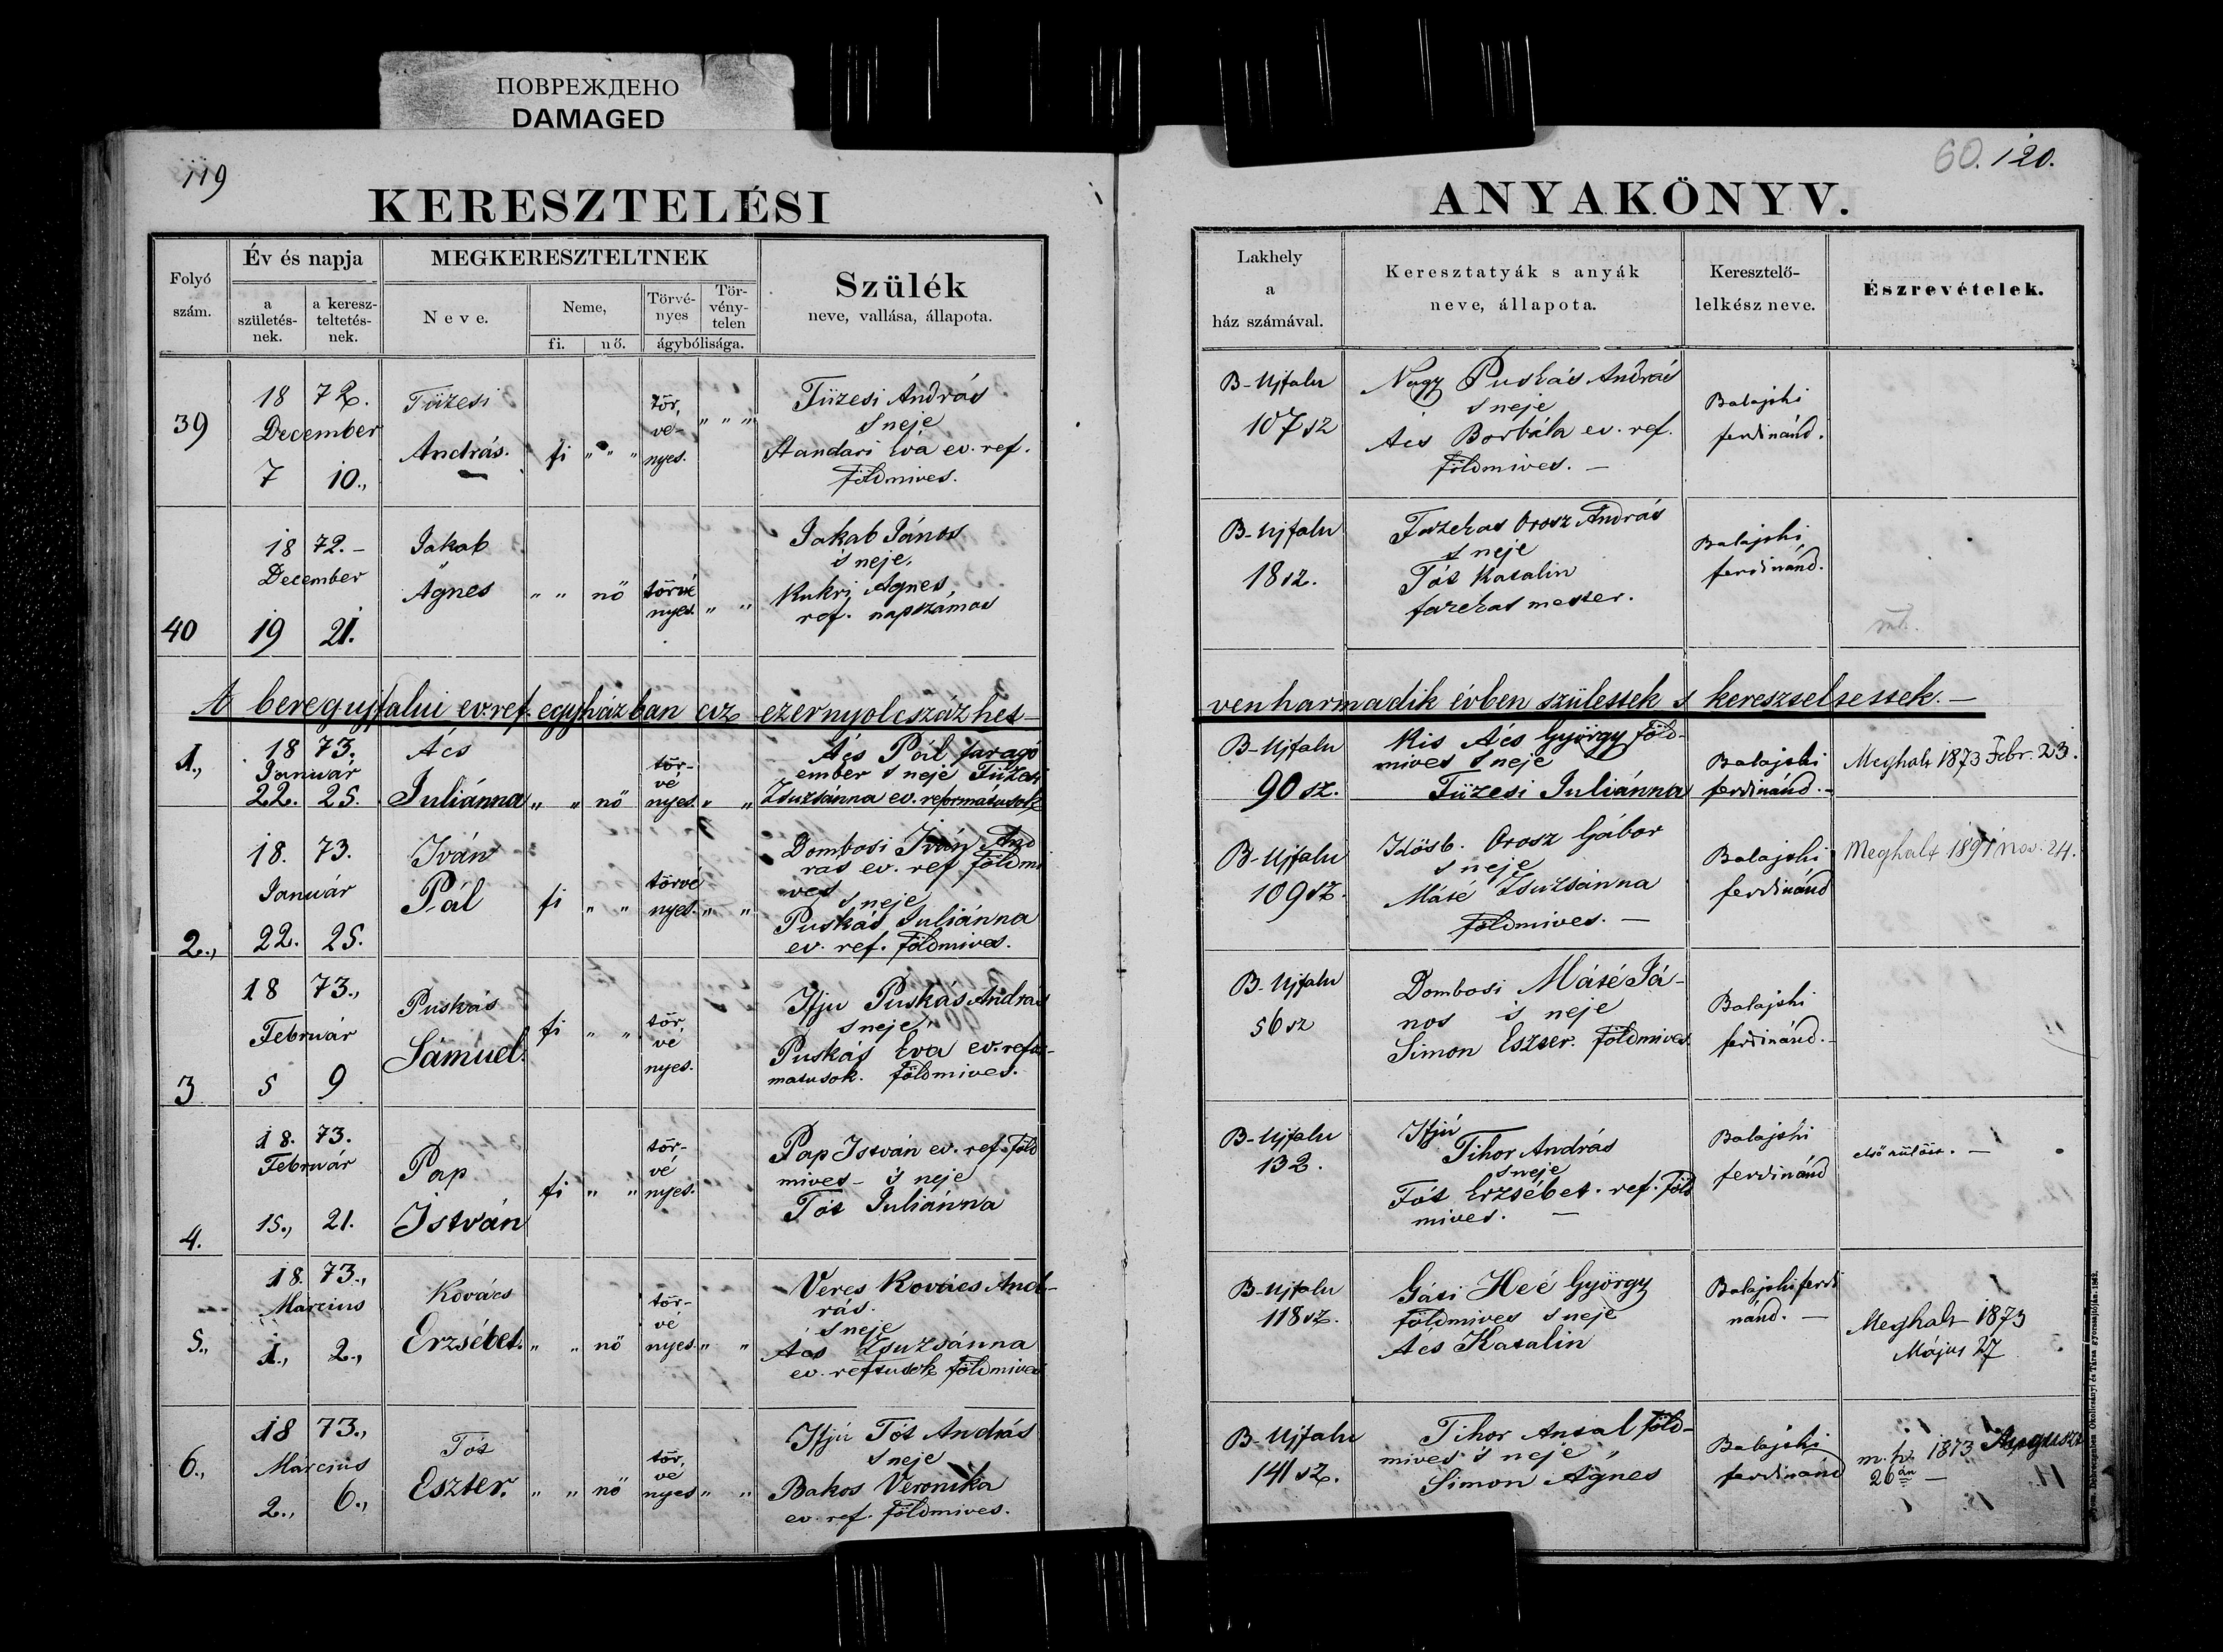 ПОВРЕЖДЕНО
DAMAGED
119
KERESZTELÉSI
Folyó szám.
Év és napja
a születés-nek.
a keresz-teltetés-nek.
MEGKERESZTELTNEK
Neve.
Neme,
fi.
nő.
Törvé-nyes
Tör-vény-telen
ágybólisága.
Szülék
neve, vallása, állapota.
39
1872.
December
7 10.,
Füzesi
András.
fi " " "
tör,
vé-
nyes.
" " "
Füzesi András
s neje
Standari Éva ev. ref.
földmives.
40
1872.-
December
19 21.
Jakab
Ágnes
" " nő
törvé
nyes.
" "
Jakab János
s neje,
Kukri Ágnes
ref. napszámos
A beregujfalui ev. ref. egyházban ez ezernyolczázhet-
1.,
1873.
Január
22. 25.
Ács
Juliánna
" " nő
tör-
vé
nyes.
" "
Ács Pál faragó
ember s neje Füzesi
Zsuzsánna ev. reformátusok
2.,
18. 73.
Január
22. 25.
Iván
Pál
fi " "
törvé
nyes.
" "
Dombosi Iván And
rás ev. ref földmi
ves
s neje
Puskás Juliánna
ev. ref. földmives.
3
18 73.,
Február
5 9
Puskás
Sámuel.
fi " "
tör,
vé
nyes.
Ifju Puskás András
s neje
Puskás Éva ev. refor-
matusok. földmives.
4.
18. 73.
Február
15., 21.
Pap
István
fi " "
tör-
vé
nyes.
Pap István ev. ref. föld
mives - s neje
Tót Juliánna
5.,
18. 73.,
Március
1., 2.,
Kovács
Erzsébet.
" " nő
tör-
vé
nyes.
" "
Veres Kovács And-
rás.
s neje
Ács Zsuzsánna
ev. reftusok földmives
6.,
18 73.,
Március
2., 6.,
Tót
Eszter.
" " nő
tör,
vé
nyes
" "
Ifjú Tót András
s neje
Bakos Veronika
ev. ref. földmives.
60. 120.
ANYAKÖNYV.
Lakhely
a
ház számával.
Keresztatyák s anyák
neve, állapota.
Keresztelő-
lelkész neve.
Észrevételek.
B-Ujfalu
107 sz
Nagy Puskás András
s neje
Ács Borbála ev. ref.
földmives. —
Balajshi
ferdinánd.
B-Ujfalu
18 sz.
Fazekas Orosz András
s neje
Tót Katalin
fazekas mester.
Balajshi
ferdinánd.
venharmadik évben születtek s kereszteltettek. —
B-Ujfalu
90 sz.
Kis Ács György föld-
mives s neje
Füzesi Juliánna
Balajshi
ferdinánd.-
Meghalt 1873 Febr. 23.
B-Ujfalu
109 sz.
Idősb. Orosz Gábor
s neje
Máté Zsuzsánna
földmives. —
Balajshi
ferdinánd
Meghalt 1891 nov. 24.
B-Ujfalu
56 sz
Dombosi Máté Já-
nos s neje
Simon Eszter. földmives
Balajshi
ferdinánd.-
B-Ujfalu
132.
Ifjú
Tihor András
s neje
Tót Erzsébet. ref. föld
mives. —
Balajshi
ferdinánd
első szülött. —
B-Ujfalu
118 sz.
Gáti Heé György
földmives s neje
Ács Katalin
Balajshi ferdi
nánd. —
Meghalt 1873
Május 27
B-Ujfalu
141 sz.
Tihor Antal föld-
mives s neje
Simon Ágnes
Balajshi
ferdinánd
m. h. 1873 Auguszt
26án —